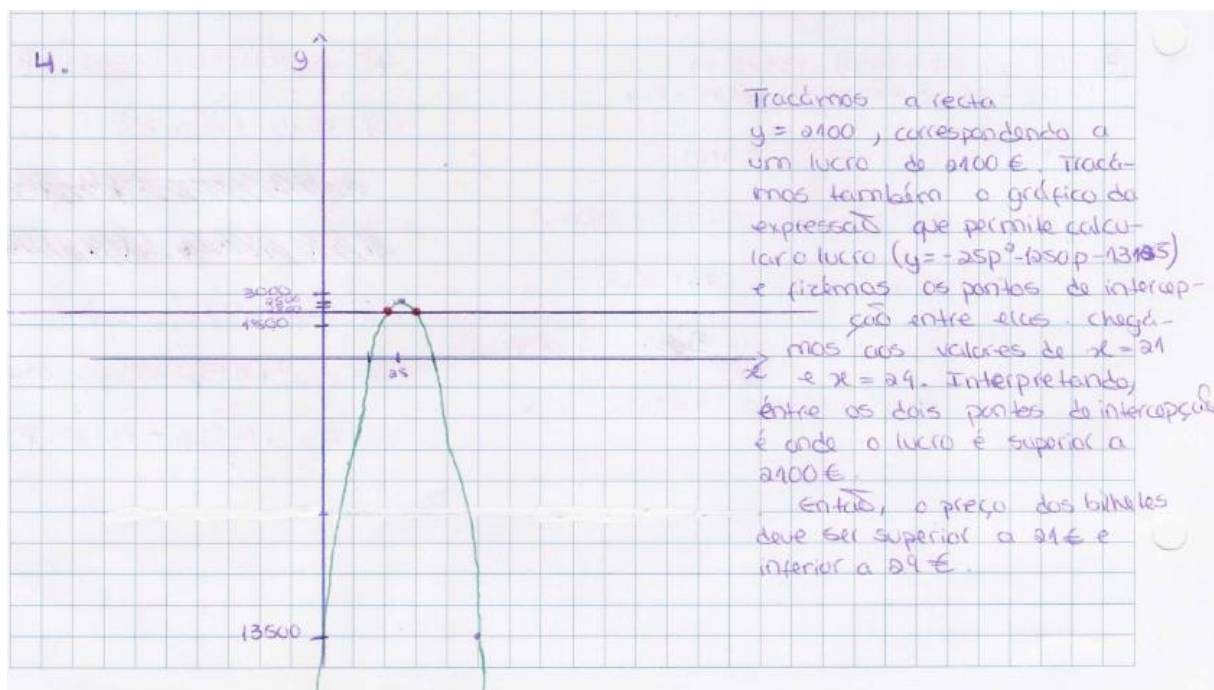 4.
y
Tracámos a recta
y = 2100, correspondendo a
um lucro de 2100 €. Tracá-
mos também o gráfico da
expressão que permite calcu-
lar o lucro (y=-25p²-1250p-13125)
e fizémos os pontos de intercep-
ção entre elas. Chegá-
mos aos valores de x=21
e x=29. Interpretando,
entre os dois pontos de intercepção
é onde o lucro é superior a
2100€.
Então, o preço dos bilhetes
deve ser superior a 21€ e
inferior a 29€.
3000
2500
1500
25
x
13500